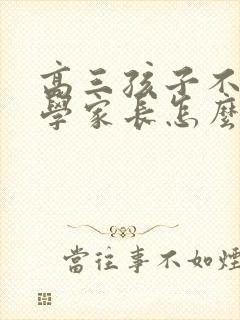 高三孩子不
學家長怎麼
當往事不如煙